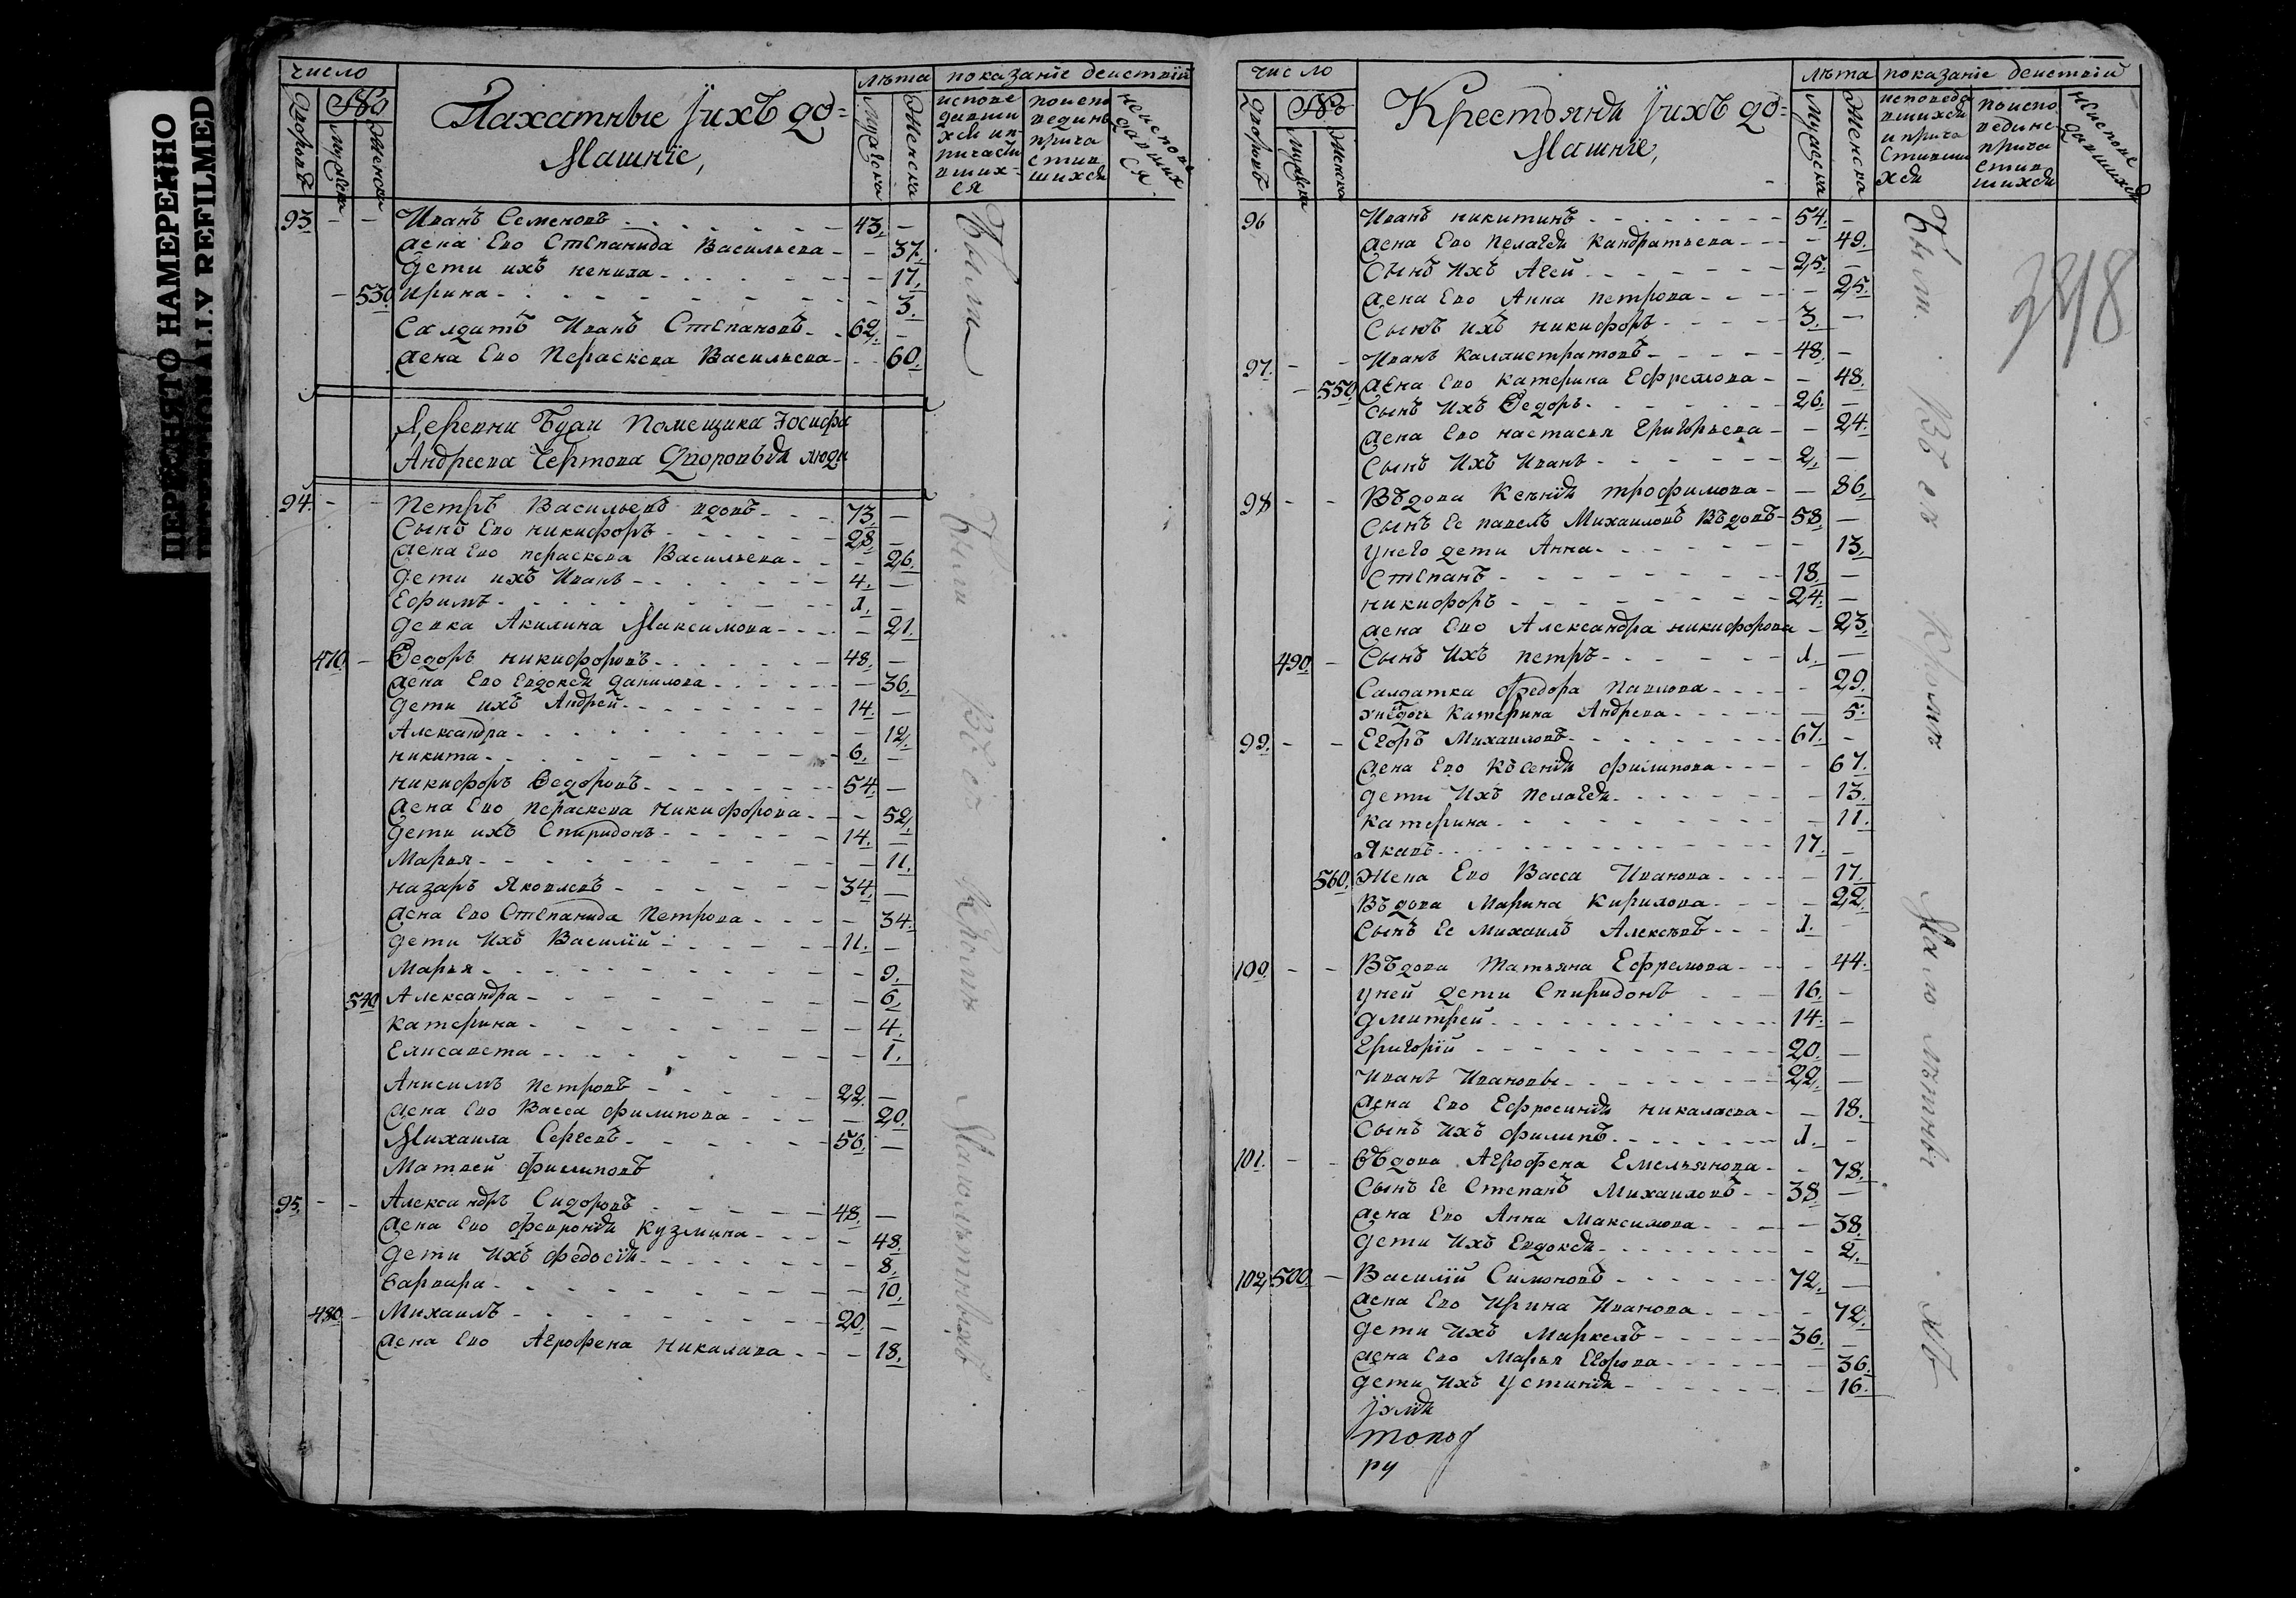 ПЕРЕСНЯТО НАМЕРЕННО
INTENTIONALLY REFILMED
число
лѣта показанїе деиствїй
Дворовъ
Мужеска
Женска
Пахатные ихъ до=
машнїе,
Мужеска
Женска
исповедавшихся и причастившихся
поисповединъ причастившихся
неисповедавшихся
93. - - Иванъ Семеновъ - 43. -
жена Ево Степанида Васильева - - 37.
дети ихъ ненила - - 17.
- 530. Ирина - - 3.
Салдатъ Иванъ Степановъ - 62. -
жена Ево Пераскева Васильева - - 60.
Деревни Буды Помещика Иосифа
Андреева Чертова Дворовыя люди
94. - - Петръ Васильевъ вдовъ - 73. -
Сынъ Ево никифоръ - 28. -
жена Ево пераскева Васильева - - 26.
дети ихъ Иванъ - 4. -
Ефимъ - 1. -
девка Акилина Максимова - - 21.
470. - Ѳедоръ никифоровъ - 48. -
жена Ево Евдокея данилова - - 36.
дети ихъ Андрей - 14. -
Александра - - 12.
никита - 6. -
никифоръ Ѳедоровъ - 54. -
жена Ево Пераскева никифорова - - 52.
дети ихъ Спиридонъ - 14. -
Марья - - 11.
назаръ Яковлевъ - 34. -
жена Ево Степанида Петрова - - 34.
дети Ихъ Василїй - 11. -
Марья - - 9.
540. Александра - - 6.
катерина - - 4.
Елисавета - - 1.
Анисимъ петровъ - 22. -
жена Ево Васса филипова - - 20.
Михаила Сергеевъ - 56. -
Матвеи филиповъ
95. - - Александръ Сидоровъ - 48. -
жена Ево феврония кузмина - - 48.
дети Ихъ федосїя - - 8.
варвара - - 10.
480. - Михаилъ - 20. -
жена Ево Агрофена никалаева - - 18.
Были
Были Все Кроме Малолѣтныхъ
число
лѣта показанїе деиствїй
Дворовъ
Мужеска
Женска
Крестьяня ихъ до=
машнїе,
Мужеска
Женска
исповедавшихся и причастившихся
поисповедине причастившихся
неисповедавшихся
96 Иванъ никитинъ - 54. -
жена Ево пелагея кандратьева - - 49.
Сынъ Ихъ Агей - 25. -
жена Ево Анна петрова - - 25.
Сынъ ихъ никифоръ - 3. -
97. - - Иванъ Каллистратовъ - 48. -
- 550. жена Ево катерина Ефремова - - 48.
сынъ Ихъ Ѳедоръ - 26. -
жена Ево настасья Григорьева - - 24.
Сынъ Ихъ Иванъ - 2. -
98 - - Въдова Ксенїя трофимова - - 86.
Сынъ Ее павелъ Михаиловъ Въдовъ - 58. -
унего дети Анна - - 13.
Степанъ - 18. -
никифоръ - 24. -
жена Ево Александра никифорова - 23.
490. - Сынъ Ихъ петръ - 1. -
Салдатка федора павлова - - 29.
унее дочь катерина Андреева - - 5.
99. - - Егоръ Михаиловъ - 67. -
жена Ево Късения филипова - - 67.
дети Ихъ пелагея - - 13.
катерина - - 11.
Якавъ - 17. -
560. Жена Ево Васса Иванова - - 17.
Въдова Марина кирилова - - 22.
Сынъ Ее Михаилъ Алексѣевъ - 1. -
100. - - Въдова Татьяна Ефремова - - 44.
уней дети Спиридонъ - 16. -
дмитрей - 14. -
Григорїй - 20. -
Иванъ Ивановы - 22. -
жена Ево Ефросинїя никалаева - - 18.
Сынъ Ихъ филипъ - 1. -
101. - - Въдова Агрофена Емельянова - - 78.
Сынъ Ее Степанъ Михаиловъ - 38. -
жена Ево Анна Максимова - - 38.
дети Ихъ Евдокея - - 2.
102. 500. - Василїй Симоновъ - 72. -
жена Ево Ирина Иванова - - 72.
дети Ихъ Маркелъ - 36. -
жена Ево Марья Егорова - - 36.
дети Ихъ Устинїя - - 16.
топо
ру
Были Все Кроме Малолѣтныхъ